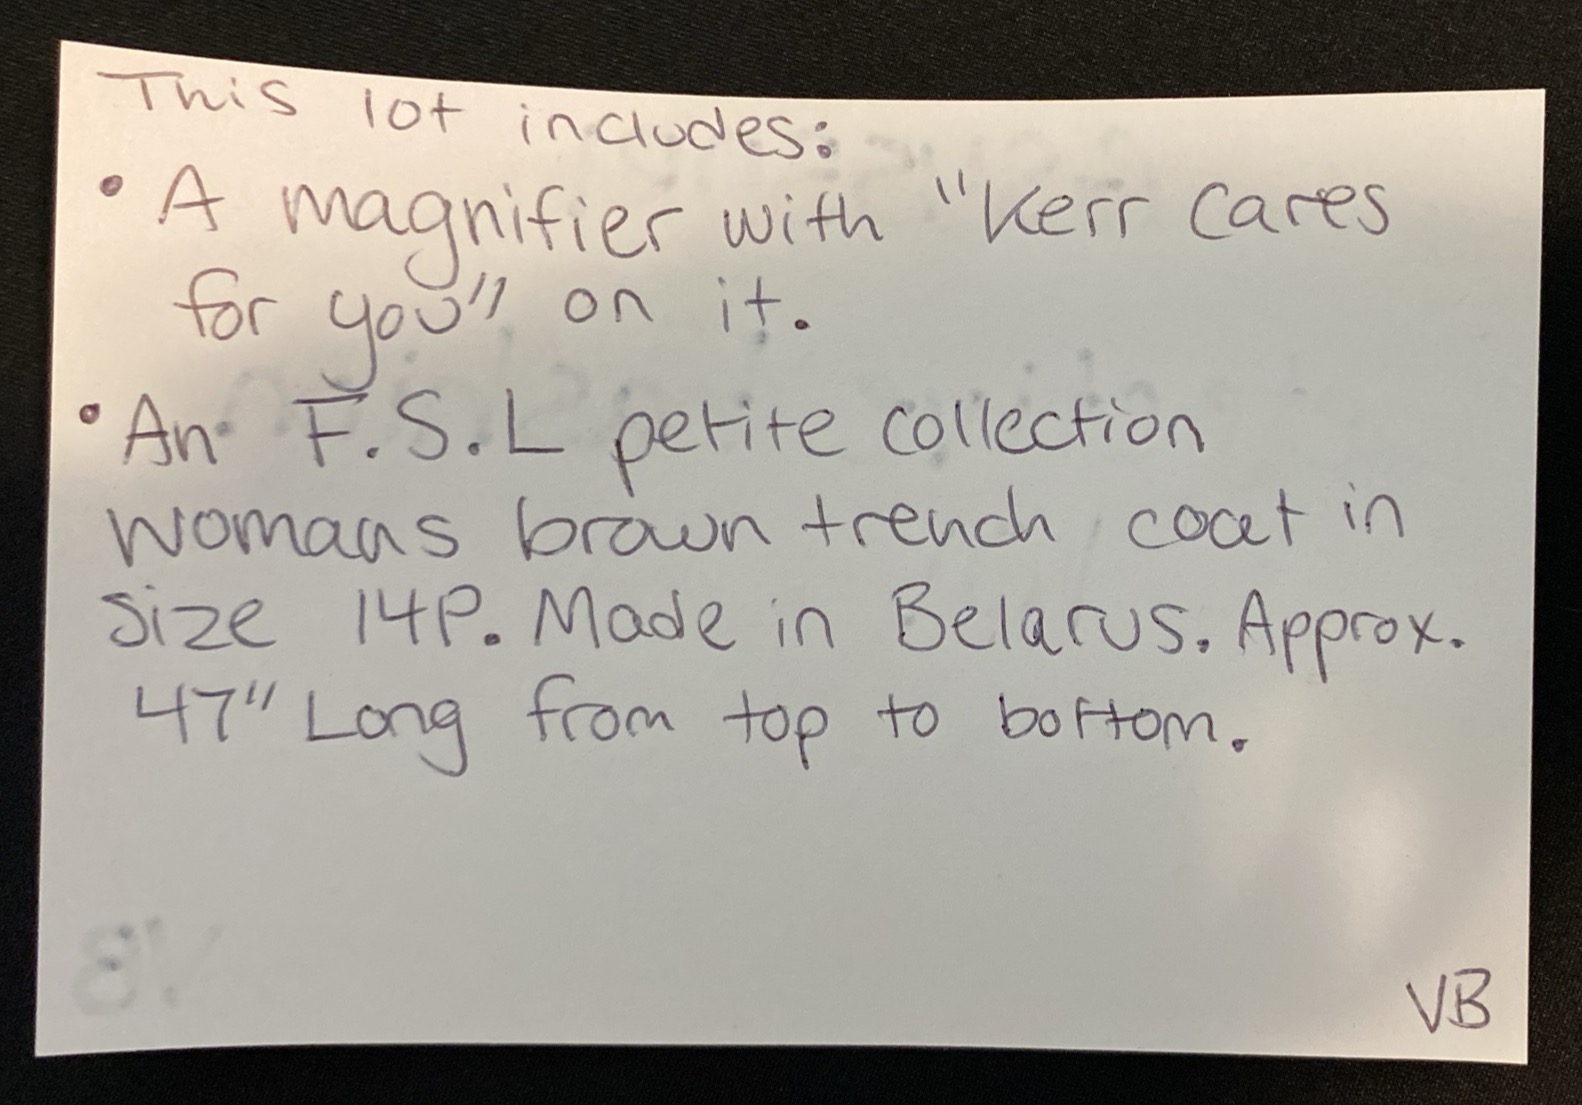 This lot includes:
• A magnifier with "Kerr Cares
for you" on it.
• An F.S.L petite collection
womans brown trench coat in
size 14P. Made in Belarus. Approx.
47" Long from top to bottom.
VB